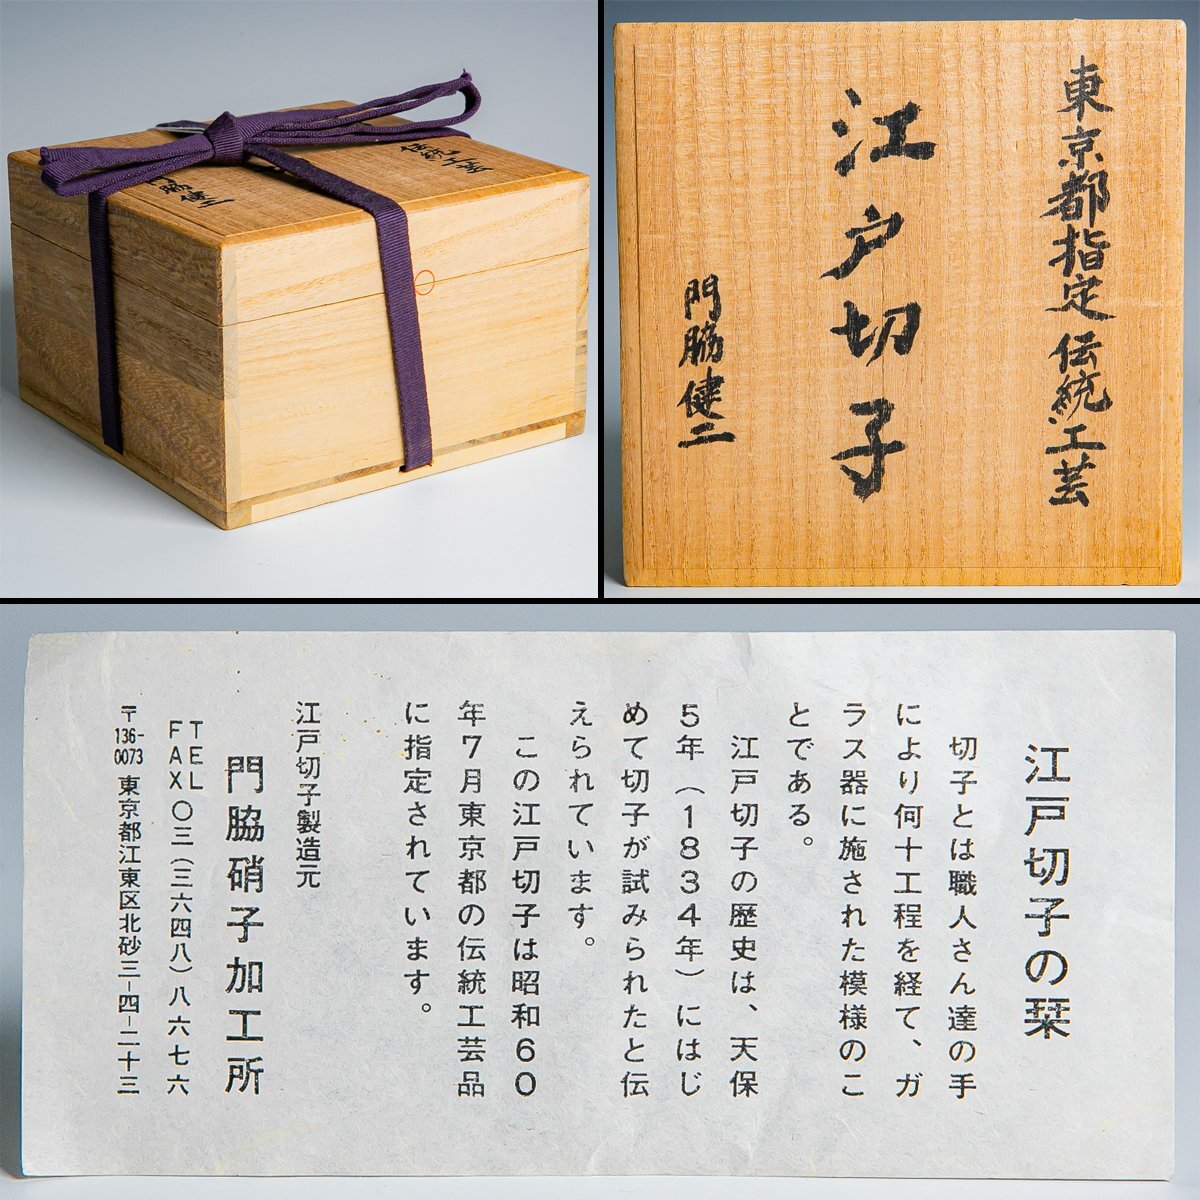 門脇健二
伝統工芸
東京都指定伝統工芸
江戸切子
門脇健二
江戸切子の栞
切子とは職人さん達の手
により何十工程を経て、ガ
ラス器に施された模様のこ
とである。
江戸切子の歴史は、天保
5年（1834年）にはじ
めて切子が試みられたと伝
えられています。
この江戸切子は昭和60
年7月東京都の伝統工芸品
に指定されています。
江戸切子製造元
門脇硝子加工所
TEL
FAX〇三（三六四八）八六七六
〒136-0073 東京都江東区北砂三-四-二十三